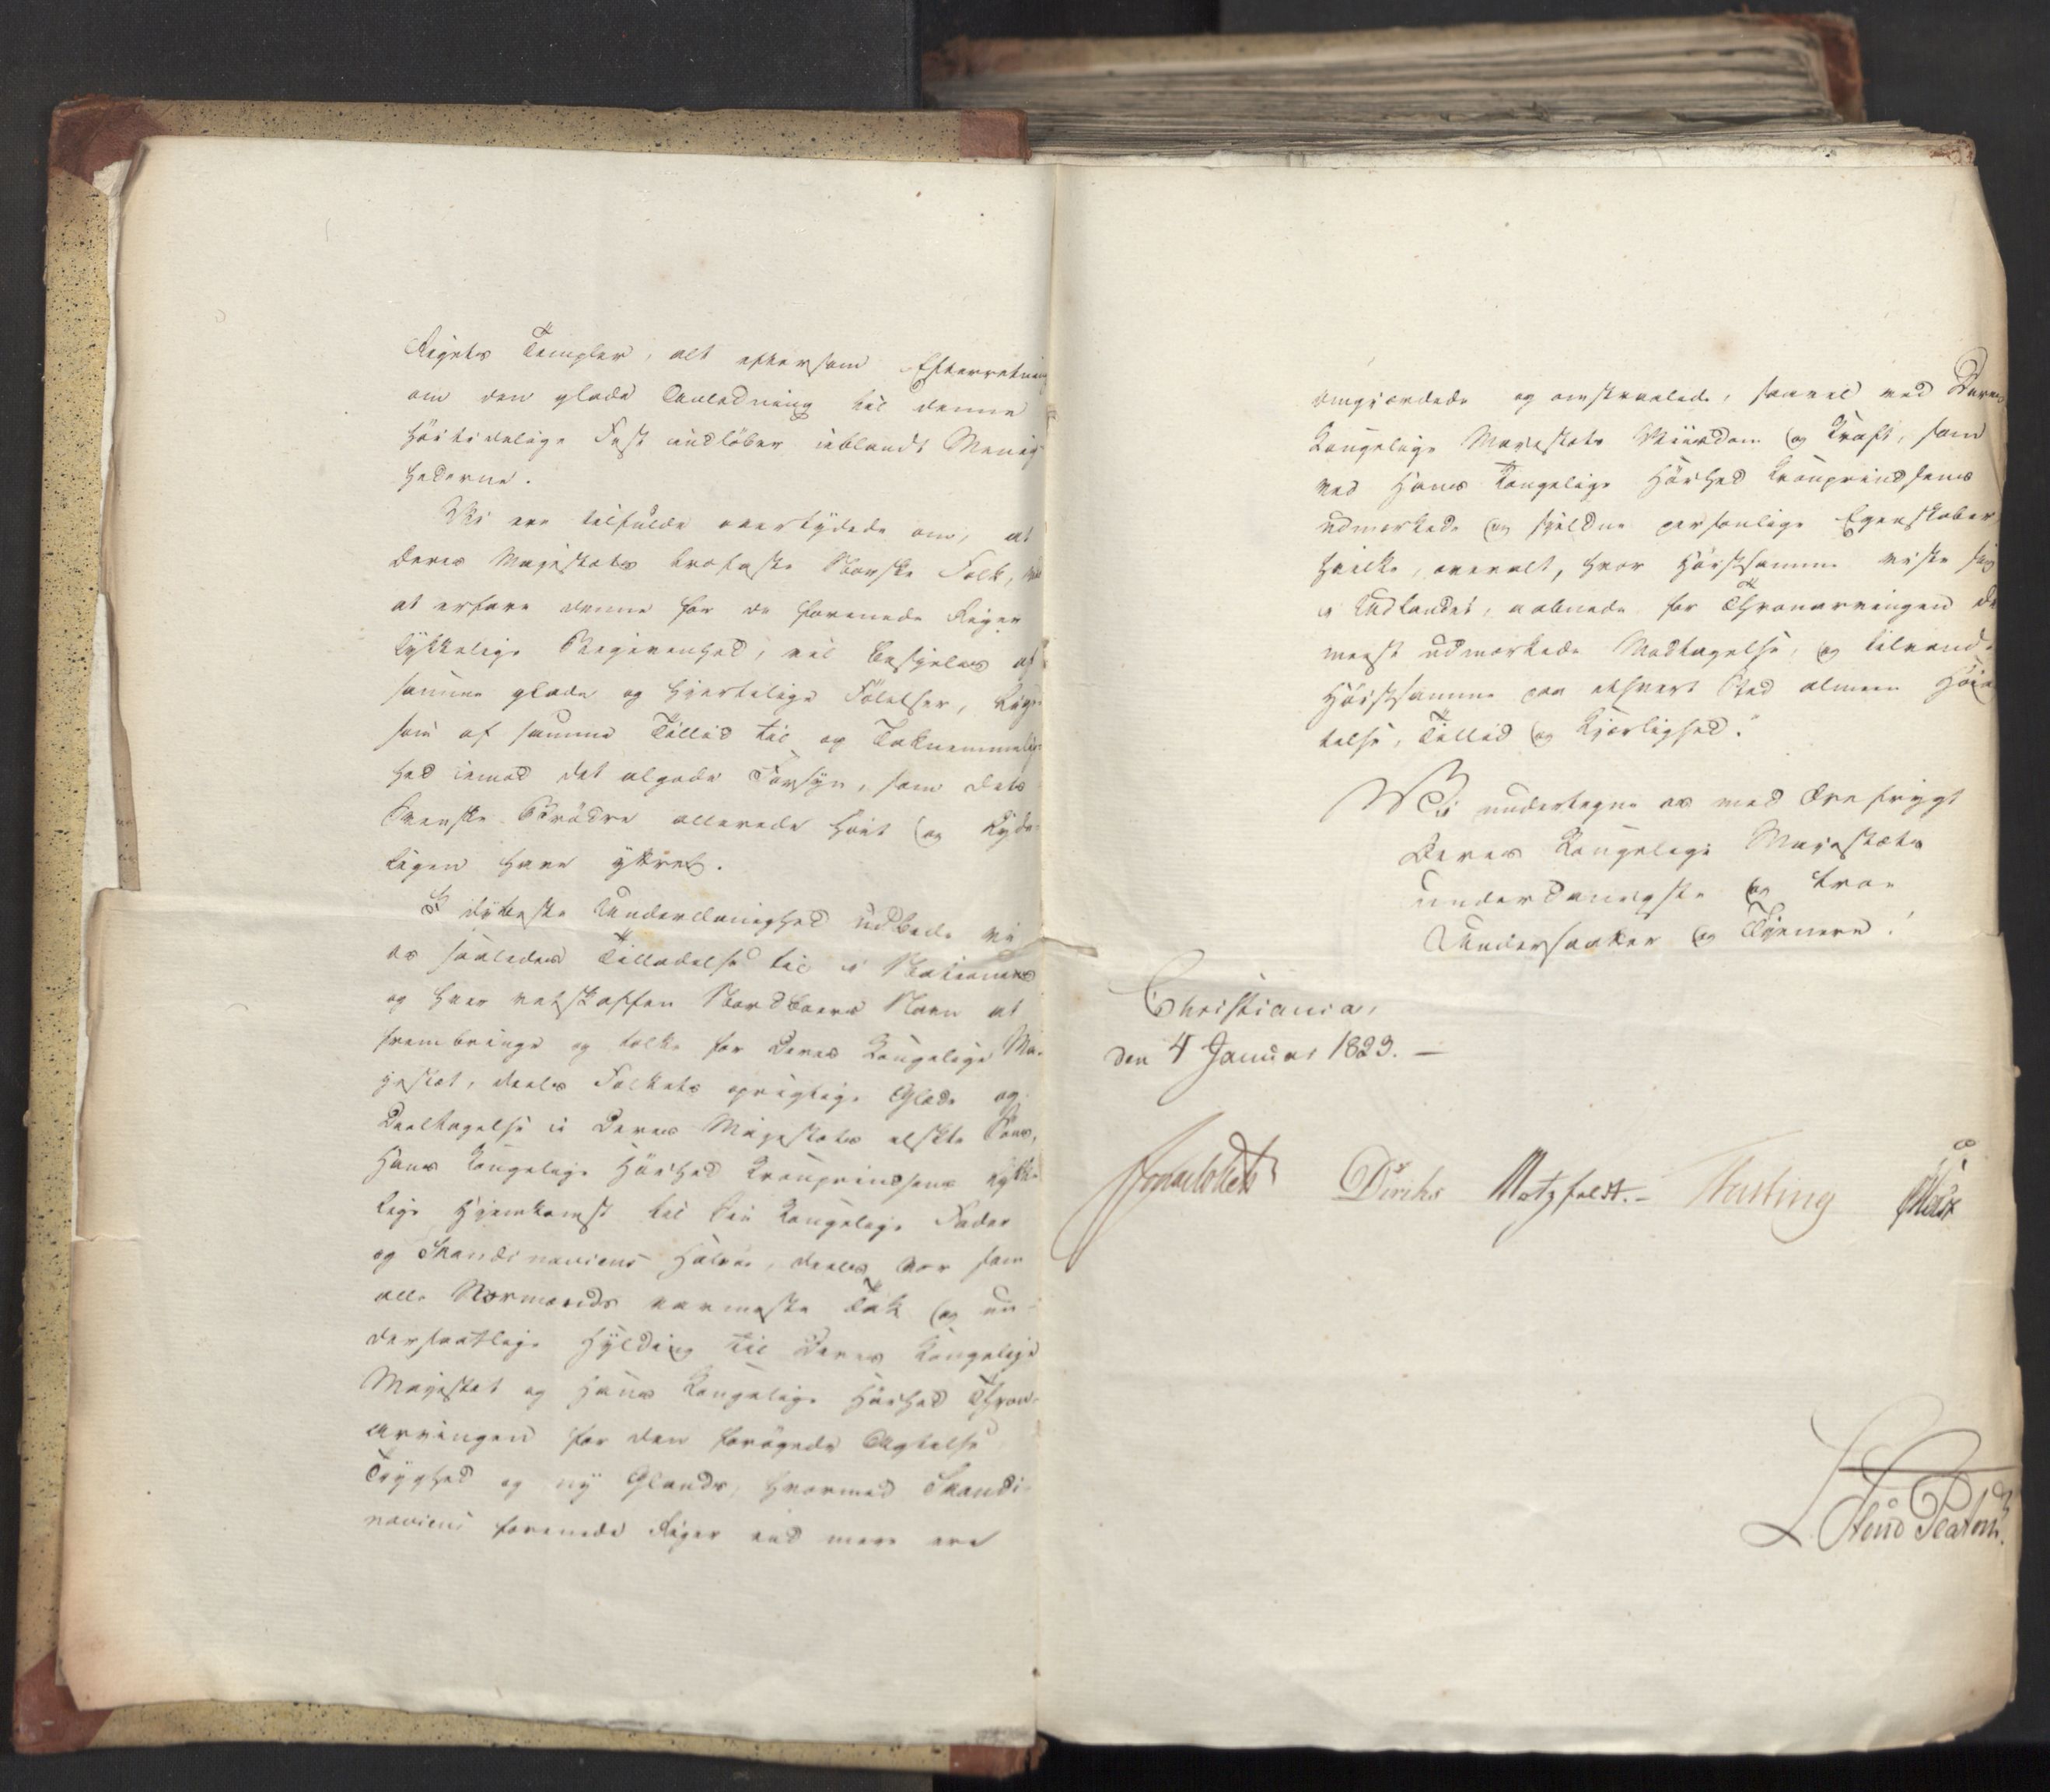 Rigets Templer, alt eftersom Efterretning
om den glade Anledning til denne
høitidelige Fest indløber iblandt Menig-
hederne.
Vi ere tilfulde overtydede om, at
Deres Majestæts trofaste Norske Folk, ved
at erfare denne for de forenede Riger
lykkelige Begivenhed, vil besjeles af
samme glade og hjertelige Følelser, lige-
som af samme Tillid til og Taknemmelig-
hed imod det algode Forsyn, som dets
Svenske Brødre allerede høit og tyde-
ligen have yttret.
I dybeste Underdanighed udbede vi
os saaledes Tilladelse til i Nationens
og hver retskaffen Nordboers Navn at
frembringe og tolke for Deres Kongelige Ma-
jestæt, deels Folkets oprigtige Glæde og
Deeltagelse i Deres Majestæts elskte Søns,
Hans Kongelige Høihed Kronprindsens lykke-
lige Hjemkomst til sin Kongelige Fader
og Skandinaviens Halvøe, deels vor som
alle Normænds varmeste Tak og un-
dersaatlige Hylding til Deres Kongelige
Majestæt og Hans Kongelige Høihed Thron-
arvingen for den forøgede Agtelse
Tryghed og ny Glands, hvormed Skandi-
naviens forenede Riger end mere ere
omgjærdede og omstraalede, saavel ved Deres
Kongelige Majestæts Viisdom og Kraft, som
ved Hans Kongelige Høihed Kronprindsens
udmærkede og sjeldne personlige Egenskaber
hvilke, overalt, hvor Høistsamme viste sig
i Udlandet, aabnede for Thronarvingen de
meest udmærkede Modtagelse, og tilvandt
Høistsamme paa ethvert Sted almeen Høiag-
telse, Tillid og Kjærlighed.
Vi undertegne os med Ærefrygt
Deres Kongelige Majestæts
underdanigste og troe
Undersaatter og Tjenere.
Christiania,
den 4 Januar 1823. —
Diriks Motzfeldt. — Fasting Holst